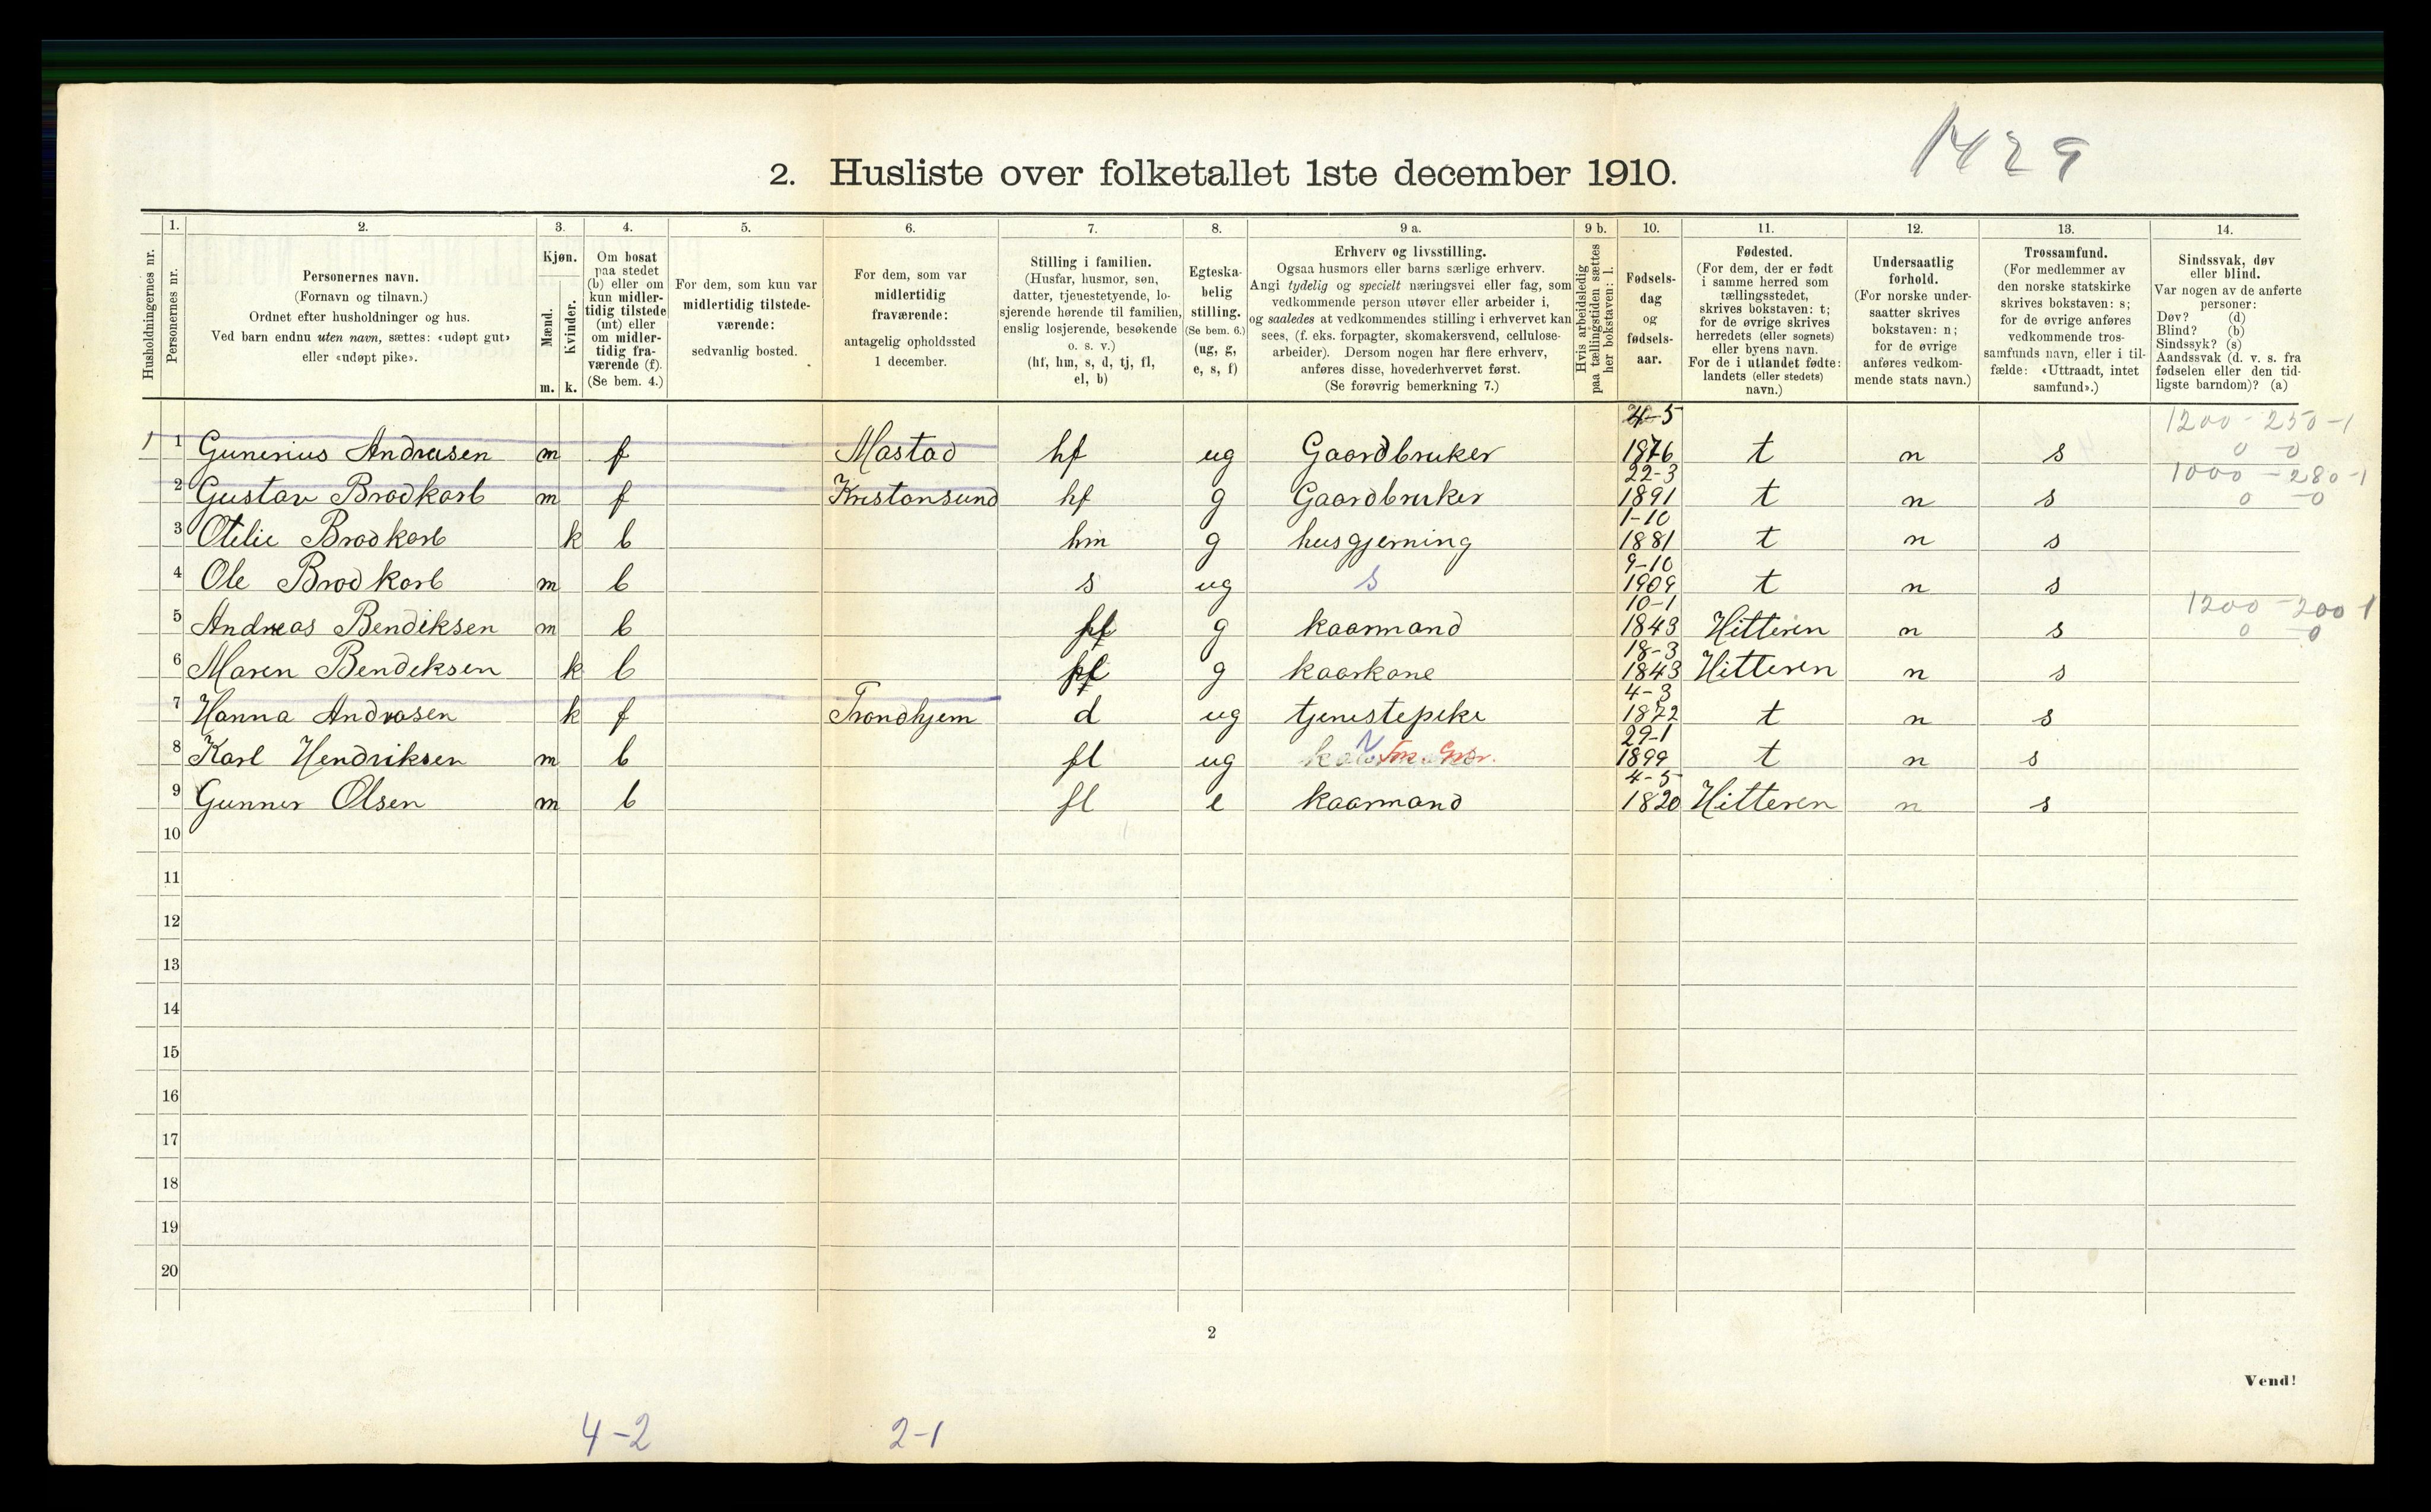 1429
2. Husliste over folketallet 1ste december 1910.
Husholdningernes nr.
1.
Personernes nr.
2.
Personernes navn.
(Fornavn og tilnavn.)
Ordnet efter husholdninger og hus.
Ved barn endnu uten navn, sættes: «udøpt gut»
eller «udøpt pike».
3.
Kjøn.
Mænd.
m.
Kvinder.
k.
4.
Om bosat
paa stedet
(b) eller om
kun midler-
tidig tilstede
(mt) eller
om midler-
tidig fra-
værende (f).
(Se bem. 4.)
5.
For dem, som kun var
midlertidig tilstede-
værende:
sedvanlig bosted.
6.
For dem, som var
midlertidig
fraværende:
antagelig opholdssted
1 december.
7.
Stilling i familien.
(Husfar, husmor, søn,
datter, tjenestetyende, lo-
sjerende hørende til familien,
enslig losjerende, besøkende
o. s. v.)
(hf, hm, s, d, tj, fl,
el, b)
8.
Egteska-
belig
stilling.
(Se bem. 6.)
(ug, g,
e, s, f)
9 a.
Erhverv og livsstilling.
Ogsaa husmors eller barns særlige erhverv.
Angi tydelig og specielt næringsvei eller fag, som
vedkommende person utøver eller arbeider i,
og saaledes at vedkommendes stilling i erhvervet kan
sees, (f. eks. forpagter, skomakersvend, cellulose-
arbeider). Dersom nogen har flere erhverv,
anføres disse, hovederhvervet først.
(Se forøvrig bemerkning 7.)
9 b.
Hvis arbeidsledig
paa tællingstiden sættes
her bokstaven: l.
10.
Fødsels-
dag
og
fødsels-
aar.
11.
Fødested.
(For dem, der er født
i samme herred som
tællingsstedet,
skrives bokstaven: t;
for de øvrige skrives
herredets (eller sognets)
eller byens navn.
For de i utlandet fødte:
landets (eller stedets)
navn.)
12.
Undersaatlig
forhold.
(For norske under-
saatter skrives
bokstaven: n;
for de øvrige
anføres vedkom-
mende stats navn.)
13.
Trossamfund.
(For medlemmer av
den norske statskirke
skrives bokstaven: s;
for de øvrige anføres
vedkommende tros-
samfunds navn, eller i til-
fælde: «Uttraadt, intet
samfund».)
14.
Sindssvak, døv
eller blind.
Var nogen av de anførte
personer:
Døv? (d)
Blind? (b)
Sindssyk? (s)
Aandssvak (d. v. s. fra
fødselen eller den tid-
ligste barndom)? (a)
4-5 1200-250-1
1 1 Gunerius Andreasen m f Mastad hf ug Gaardbruker 1876 t n s 0 0
22-3 1000-280-1
2 Gustav Brodkorb m f Kristansund hf g Gaardbruker 1891 t n s 0 0
1-10
3 Otelie Brodkorb k b hm g husgjerning 1881 t n s
9-10
4 Ole Brodkorb m b s ug s 1909 t n s
10-1 1200-200 1
5 Andreas Bendiksen m b g kaarmand 1843 Hitteren n s 0 0
18-3
6 Maren Bendeksen k b g kaarkone 1843 Hitteren n s
4-3
7 Hanna Andrasen k f Trondhjem d ug tjenestepike 1872 t n s
29-1
8 Karl Hendriksen m b fl ug 1899 t n s
4-5
9 Gunner Olsen m b fl e kaarmand 1820 Hitteren n s
10
11
12
13
14
15
16
17
18
19
20
2
Vend!
4-2 2-1